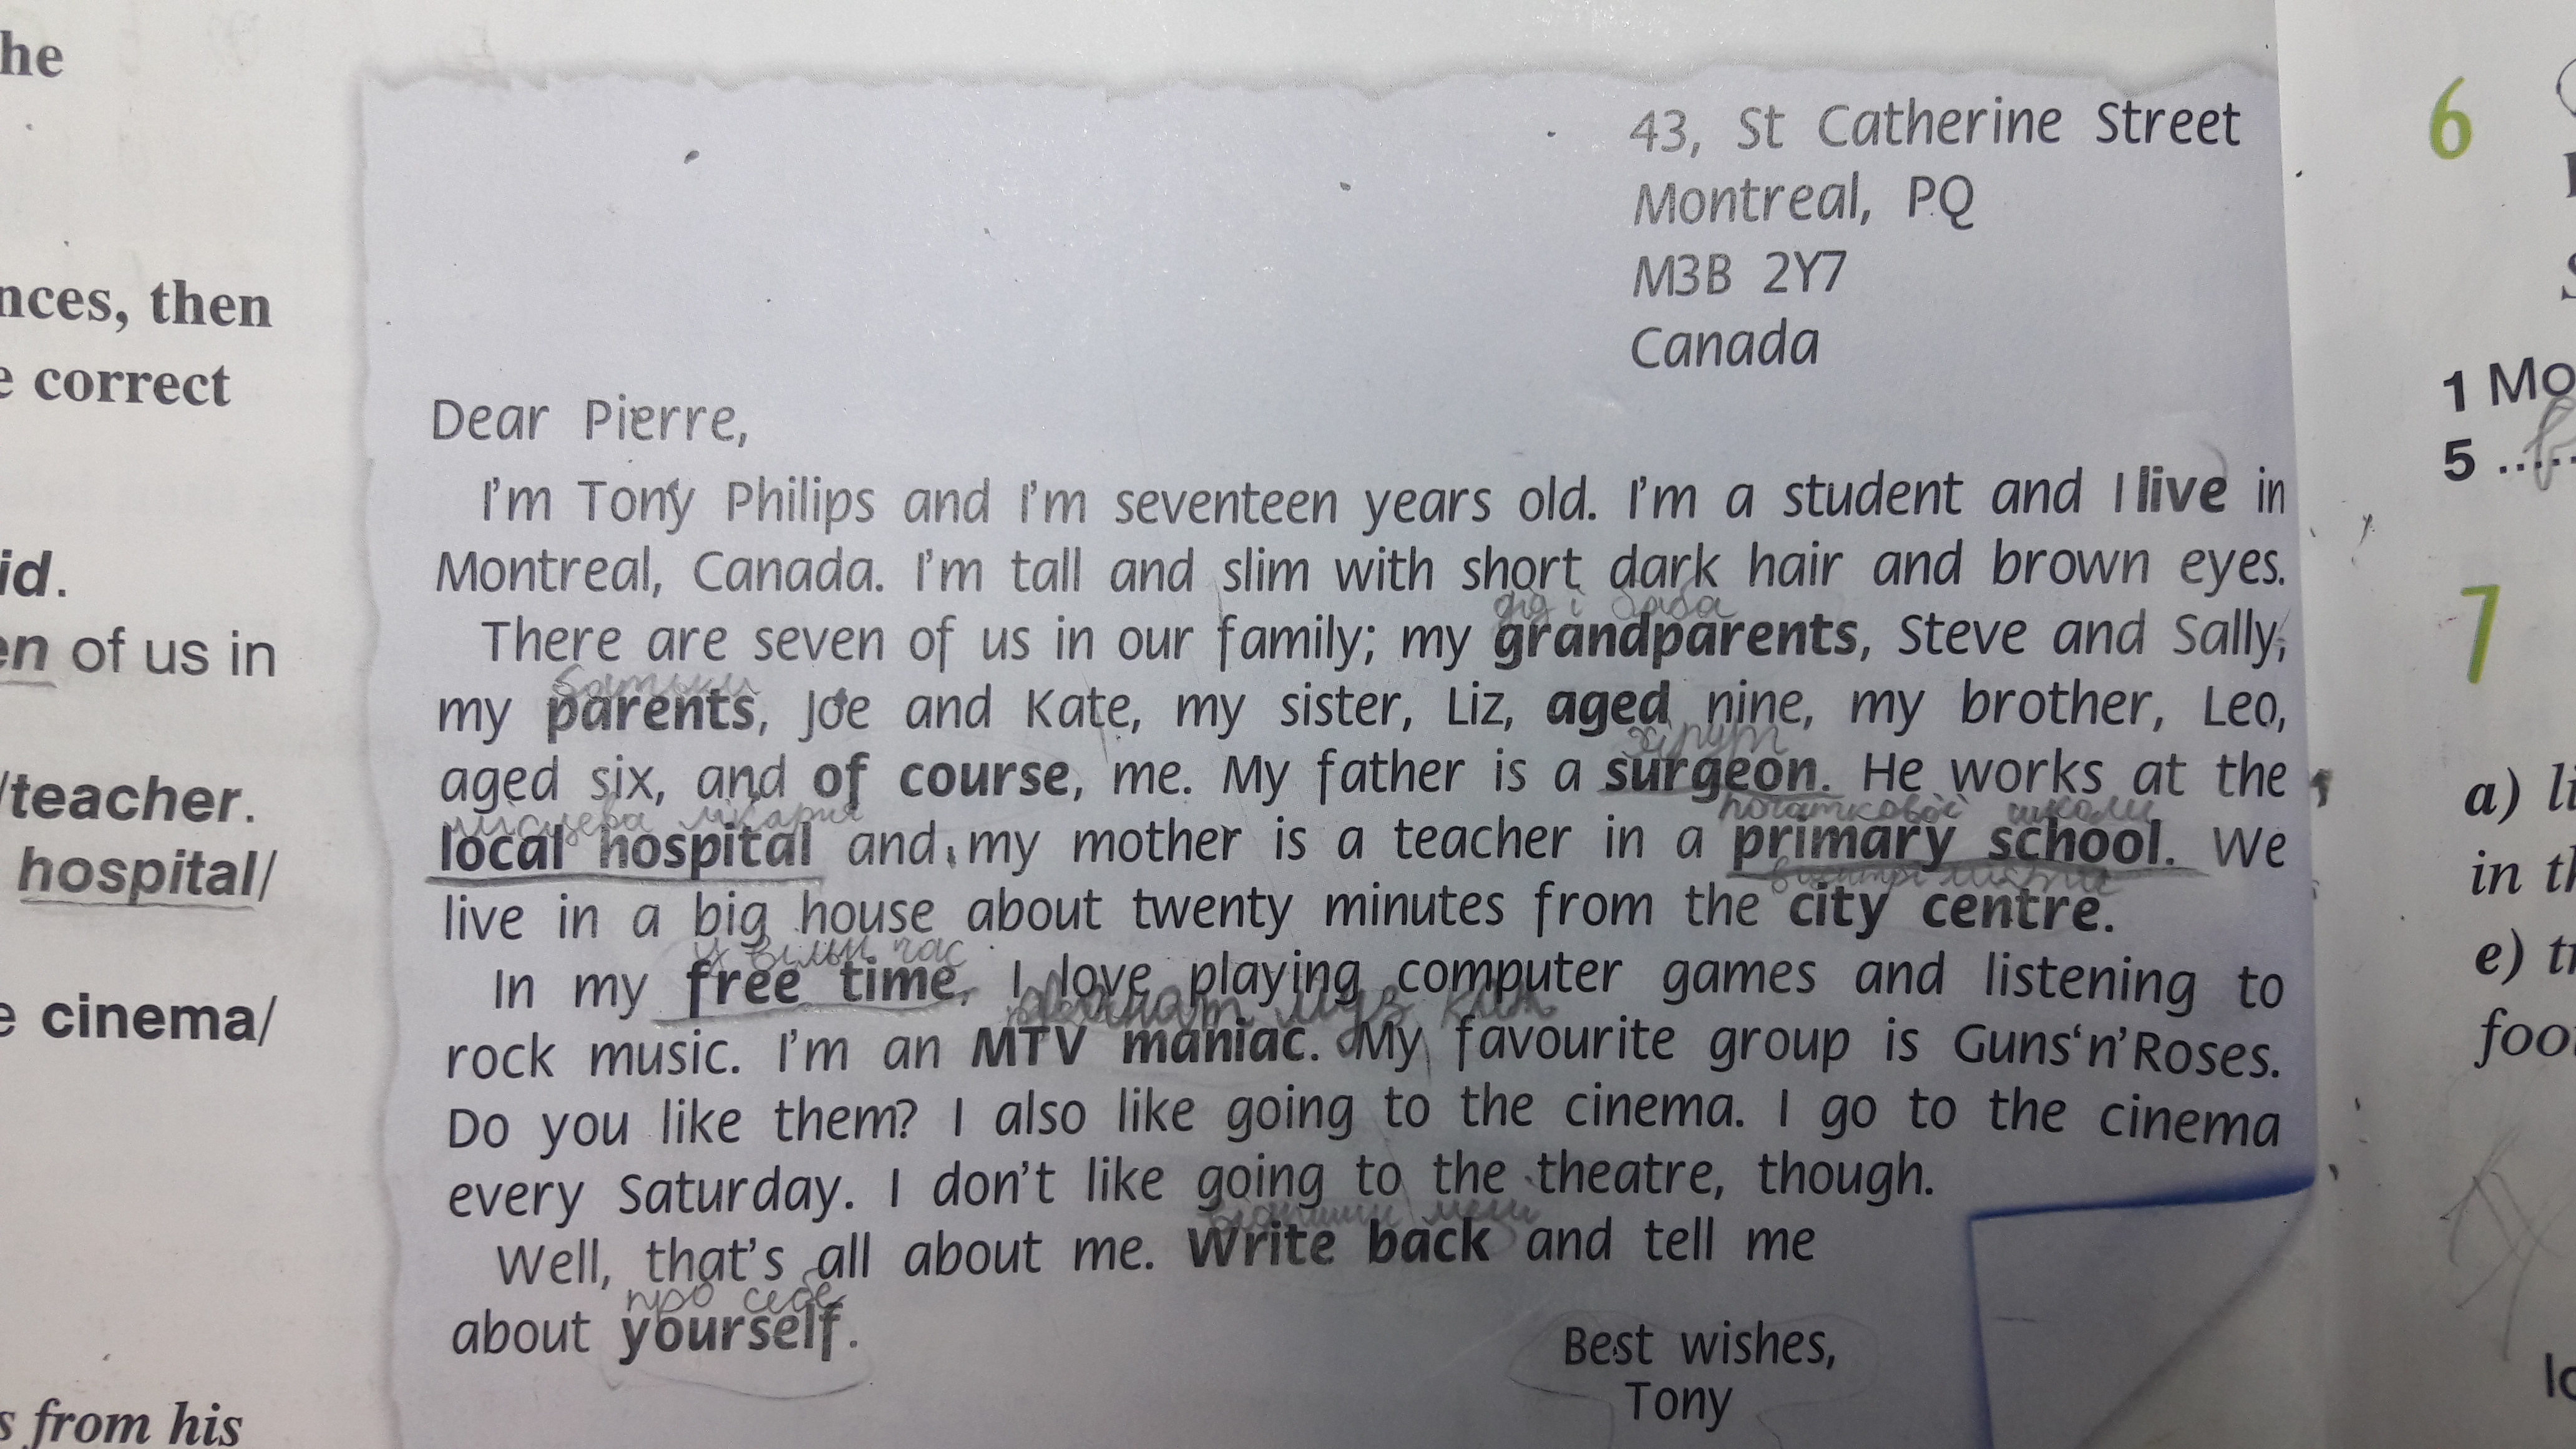 he
nces, then
e correct
id.
en of us in
/teacher.
hospital/
e cinema/
s from his
43, St Catherine Street
Montreal, PQ
M3B 2Y7
Canada
Dear Pierre,
I'm Tony Philips and I'm seventeen years old. I'm a student and I live in
Montreal, Canada. I'm tall and slim with short dark hair and brown eyes.
дід і баба
There are seven of us in our family; my grandparents, Steve and Sally,
батьки
my parents, Joe and Kate, my sister, Liz, aged nine, my brother, Leo,
хірург
aged six, and of course, me. My father is a surgeon. He works at the
місцева лікарня початкової школи
local hospital and my mother is a teacher in a primary school. We
live in a big house about twenty minutes from the city centre.
час
In my free time, I love playing computer games and listening to
муз
rock music. I'm an MTV maniac. My favourite group is Guns'n'Roses.
Do you like them? I also like going to the cinema. I go to the cinema
every Saturday. I don't like going to the theatre, though.
Well, that's all about me. Write back and tell me
про себе
about yourself.
Best wishes,
Tony
6
1 Mo
5 .....
7
a) li
in th
e) tr
foo